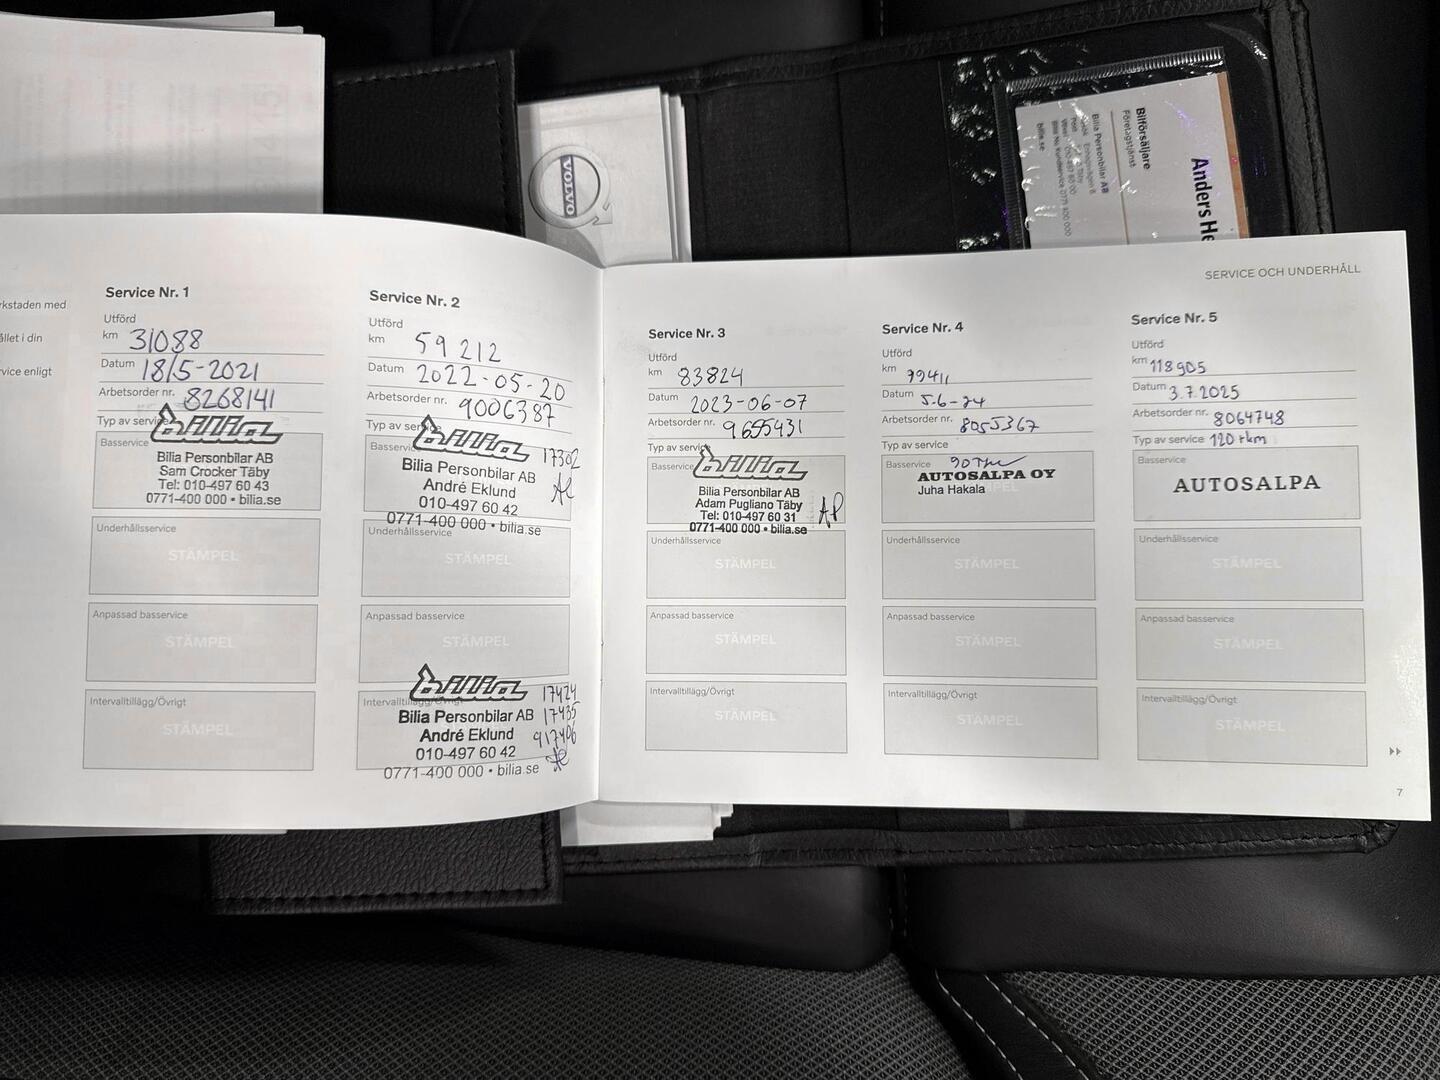 VOLVO
Anders He
Bilförsäljare
Företagstjänst
Bilia Personbilar AB
bilia.se
rkstaden med
ållet i din
rvice enligt
Service Nr. 1
Utförd
km 31088
Datum 18/5-2021
Arbetsorder nr. 8268141
Typ av service
Basservice
bilia
Bilia Personbilar AB
Sam Crocker Täby
Tel: 010-497 60 43
0771-400 000 • bilia.se
Underhållsservice
STÄMPEL
Anpassad basservice
STÄMPEL
Intervalltillägg/Övrigt
STÄMPEL
Service Nr. 2
Utförd
km 59 212
Datum 2022-05-20
Arbetsorder nr. 9006387
Typ av service
Basservice
bilia 17302
Bilia Personbilar AB
André Eklund
010-497 60 42
0771-400 000 • bilia.se
Underhållsservice
STÄMPEL
Anpassad basservice
STÄMPEL
Intervalltillägg/Övrigt
bilia 17424
Bilia Personbilar AB 17435
André Eklund 917406
010-497 60 42
0771-400 000 • bilia.se
SERVICE OCH UNDERHÅLL
Service Nr. 3
Utförd
km 83824
Datum 2023-06-07
Arbetsorder nr. 9655431
Typ av service
Basservice
bilia
Bilia Personbilar AB
Adam Pugliano Täby
Tel: 010-497 60 31
0771-400 000 • bilia.se
AP
Underhållsservice
STÄMPEL
Anpassad basservice
STÄMPEL
Intervalltillägg/Övrigt
STÄMPEL
Service Nr. 4
Utförd
km 99411
Datum 5.6-24
Arbetsorder nr. 8055367
Typ av service
Basservice
AUTOSALPA OY
Juha Hakala
Underhållsservice
STÄMPEL
Anpassad basservice
STÄMPEL
Intervalltillägg/Övrigt
STÄMPEL
Service Nr. 5
Utförd
km 118905
Datum 3.7.2025
Arbetsorder nr. 8064748
Typ av service 120 tkm
Basservice
AUTOSALPA
Underhållsservice
STÄMPEL
Anpassad basservice
STÄMPEL
Intervalltillägg/Övrigt
STÄMPEL
7